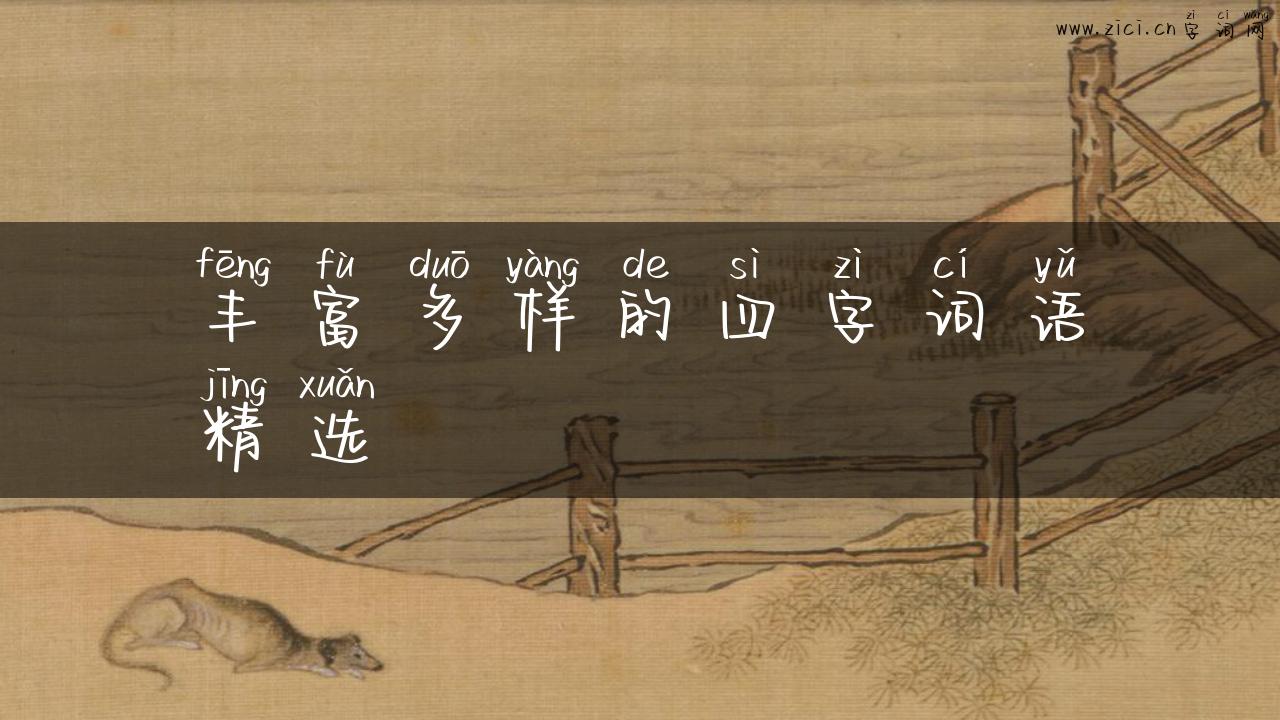 zì cí wǎng
www.zici.cn 字词网
fēng fù duō yàng de sì zì cí yǔ
丰富多样的四字词语
jīng xuǎn
精选